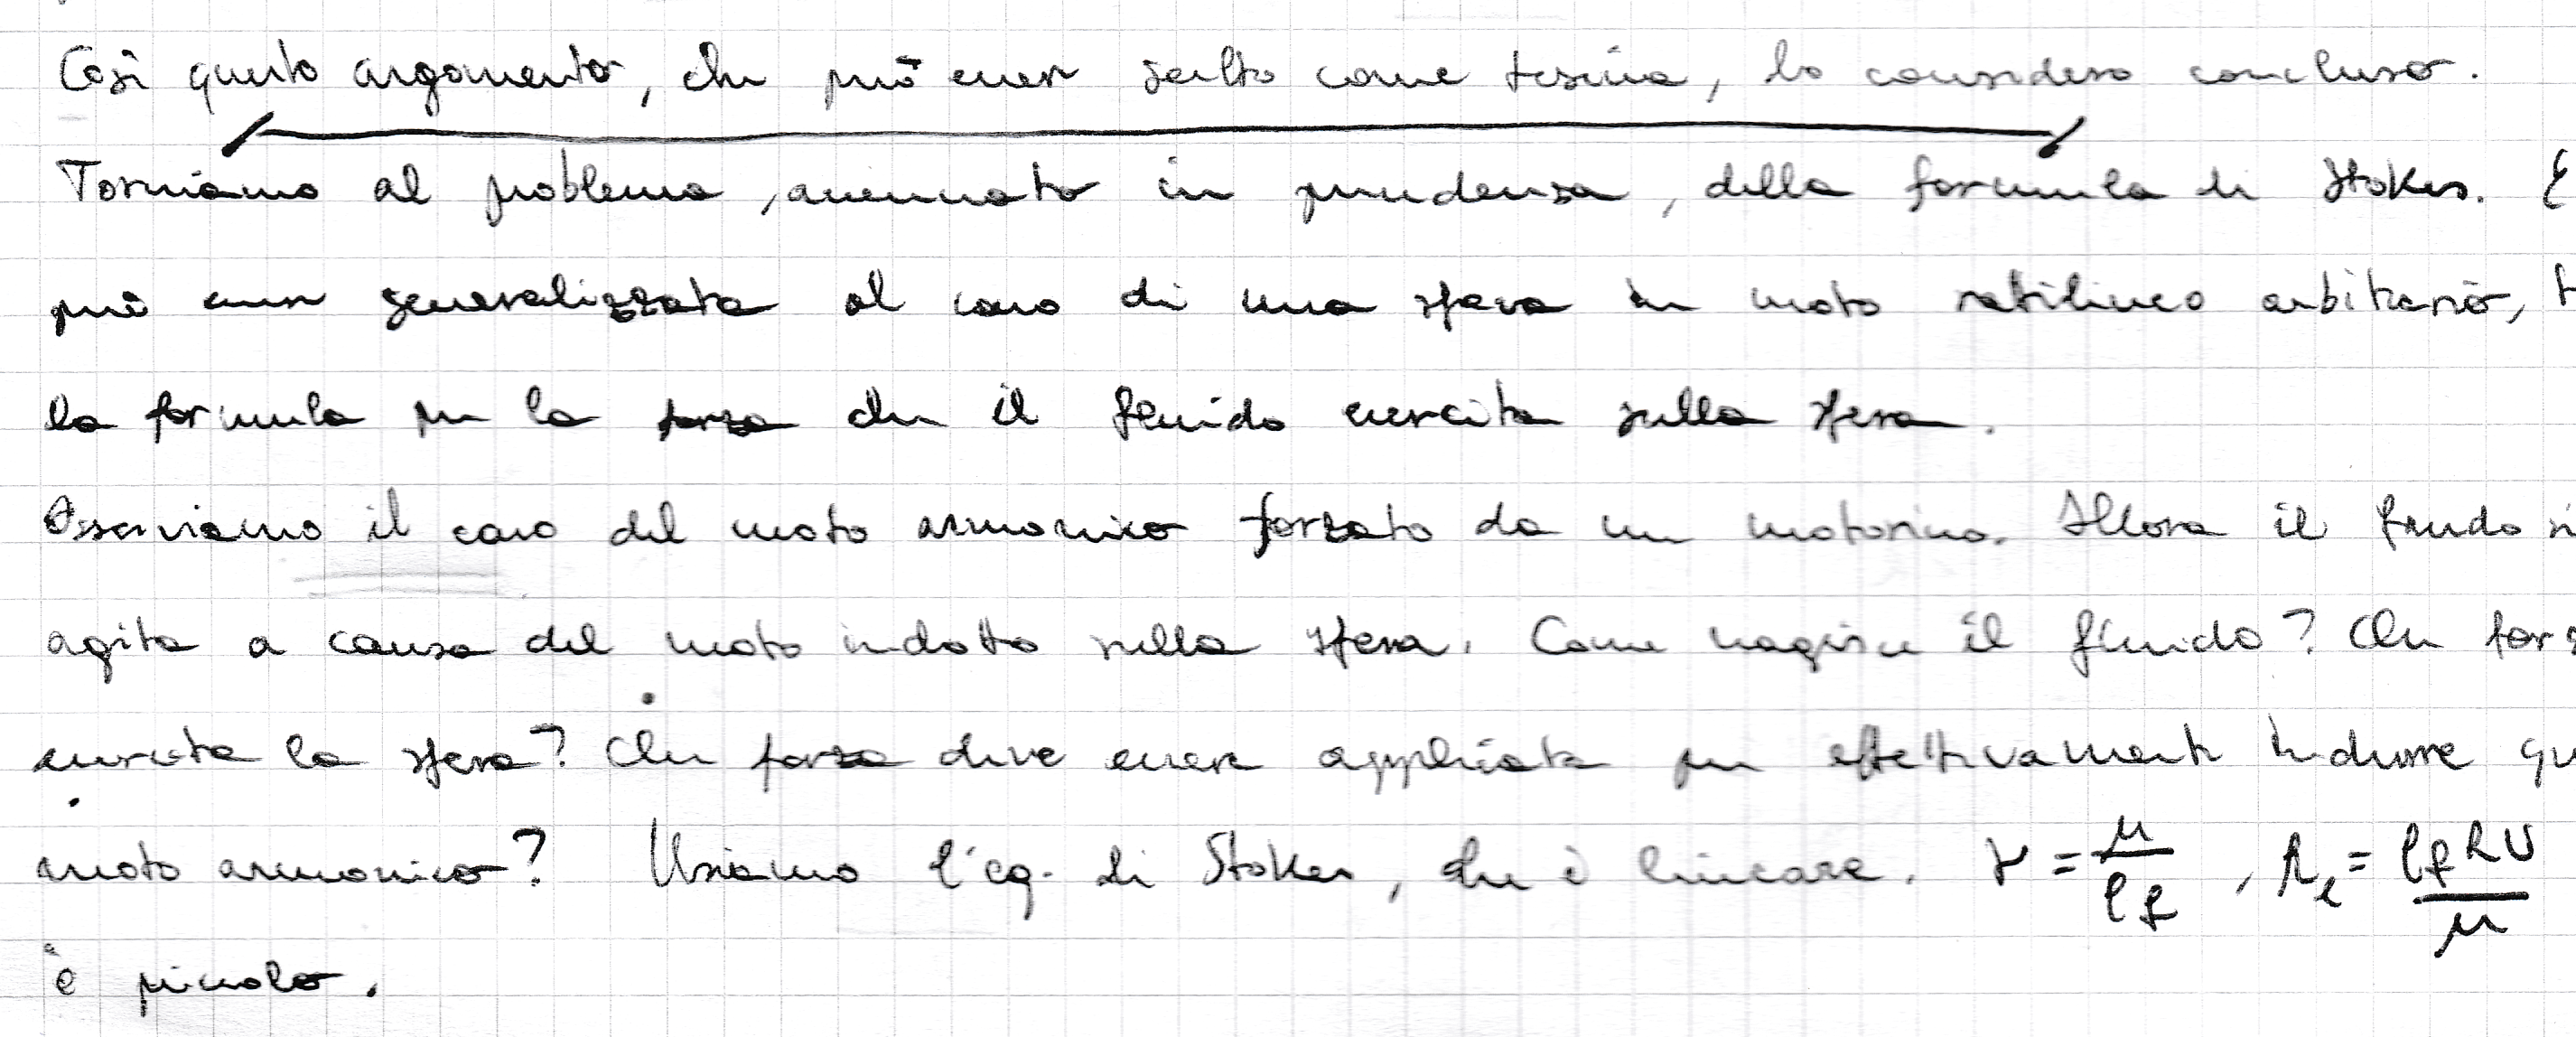 Così questo argomento, che può esser scelto come tesina, lo considero concluso.
Torniamo al problema, accennato in precedenza, della formula di Stokes. E
può esser generalizzata al caso di una sfera in moto rettilineo arbitrario, t
la formula per la forza che il fluido esercita sulla sfera.
Osserviamo il caso del moto armonico forzato da un motorino. Allora il fluido si
agita a causa del moto indotto sulla sfera. Come reagisce il fluido? Che forz
esercita la sfera? Che forza deve essere applicata per effettivamente indurre qu
moto armonico? Usiamo l'eq. di Stokes, che è lineare. ν = μ/ρf , Re = ρf R U/μ
è piccolo.